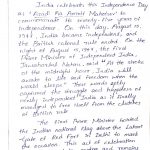 India celebrates this Independence Day
as "Azadi Ka Amrit Mahotsav" to
commemorate its seventy-five years of
Independence. On this day, August 15
1947, India became independent, and
the British colonial rule ended. On the
night of August 15, 1947, the first
Prime Minister of Independent India,
Jawaharlal Nehru said "At the stroke
of the midnight hour India will
awake to life and freedom when the
world sleeps." These words
captured the struggle and happiness of
newly independent India as it finally
emerged to free itself from the clutches
of British rule.
The First Prime Minister hoisted
the Indian national flag above the Lahori
Gate of Red Fort in Delhi to mark
the occasion. This act of celebration